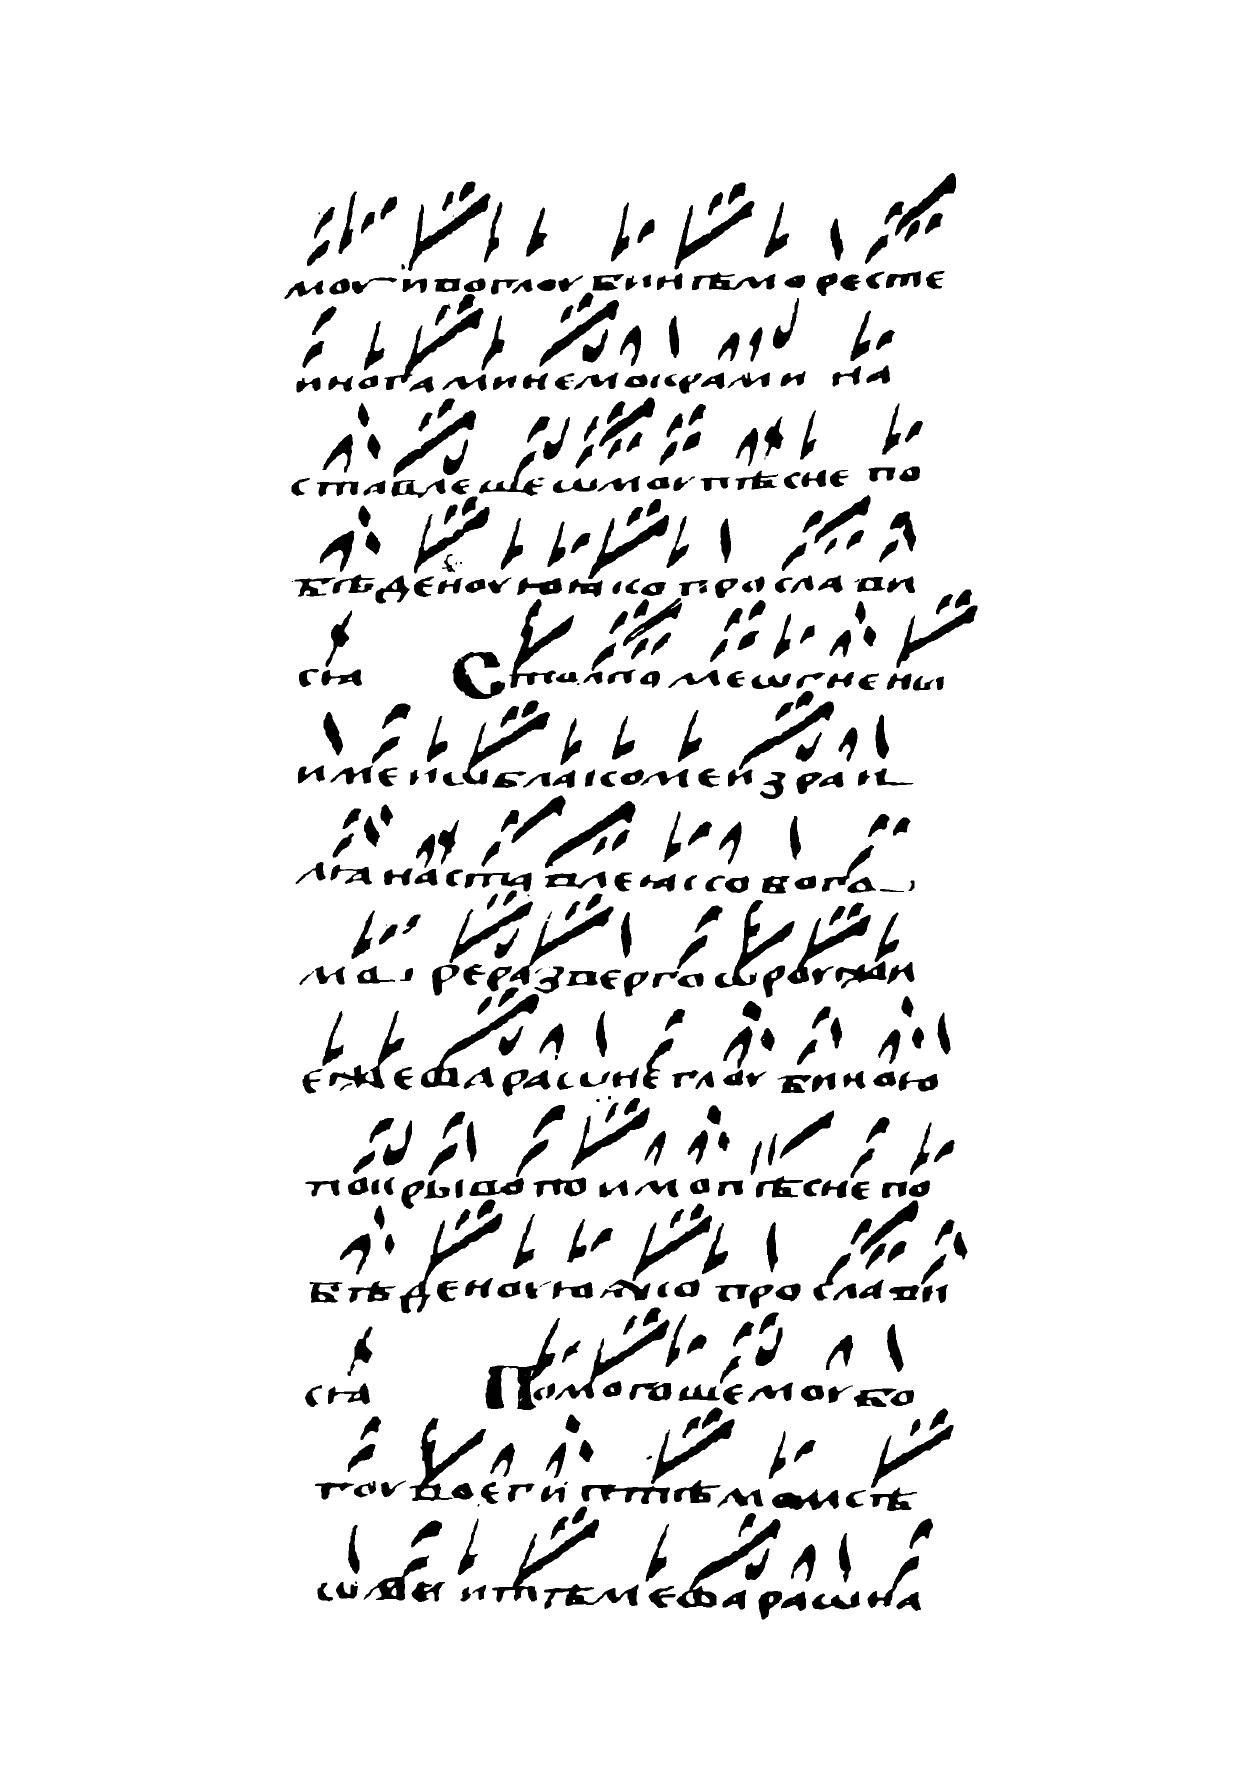 моу и во глоу бинѣморесте
иногамине мокрами на
ставлешешмоу пѣсне по
бѣденоу ююко прослави
сѩ Столпомешгнены
имеишблакомеизраи
лѩ наставлеюссовога
ма ре развергошроужи
ежефарашне глоу биною
покрывопоимо пѣсне по
бѣденоуюѩко прослави
сѩ Помогашемоу бо
гоу воеги петѣмоисѣ
шви и тѣме фарашна